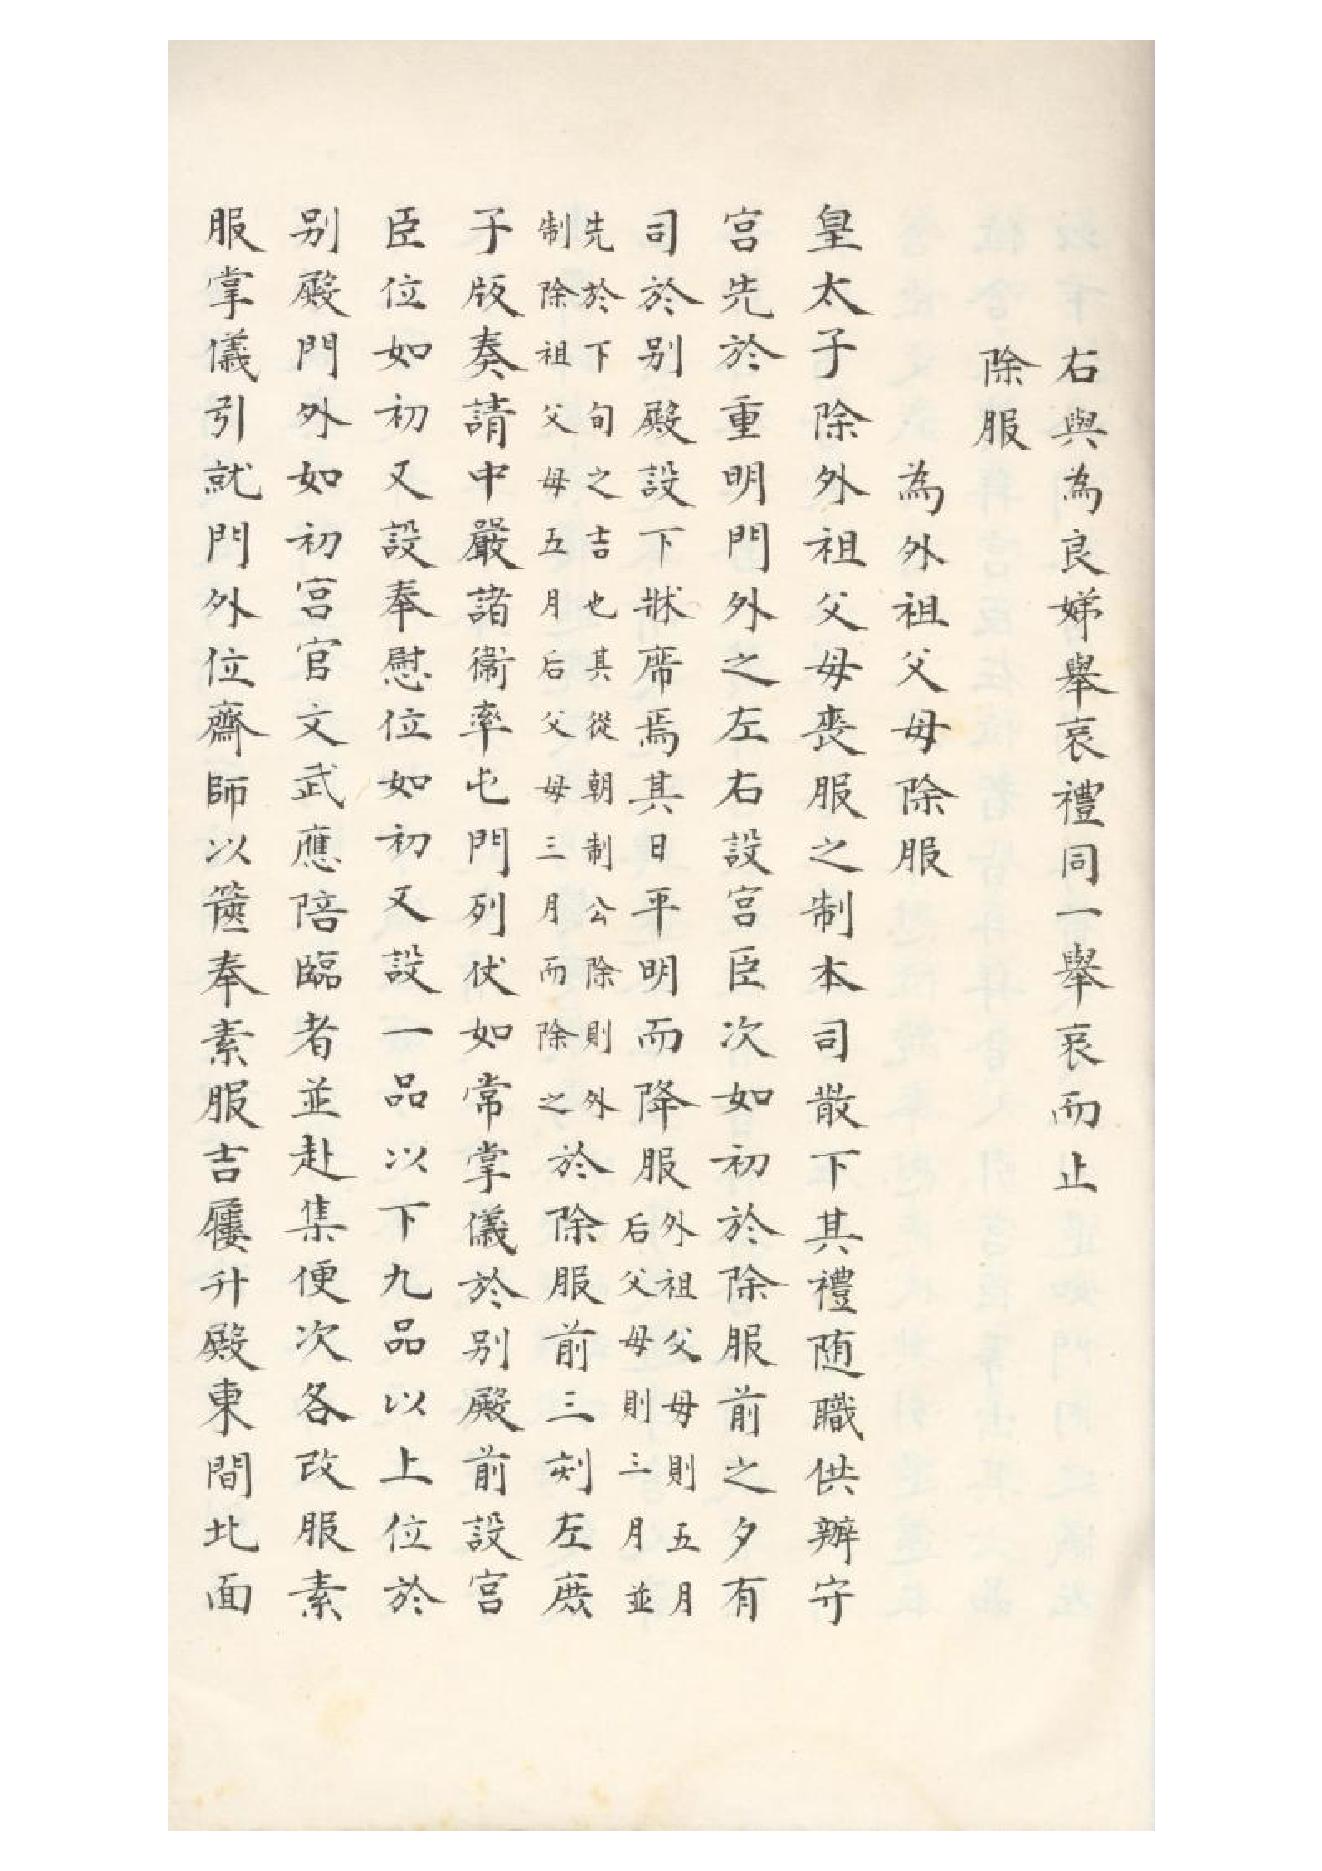 右與為良娣舉哀禮同一舉哀而止
除服
為外祖父母除服
皇太子除外祖父母喪服之制本司散下其禮随職供辦守
宮先於重明門外之左右設宮臣次如初於除服前之夕有
司於别殿設下牀席焉其日平明而降服外祖父母則五月后父母則三月並
先於下旬之吉也其從朝制公除則外制除祖父母五月后父母三月而除之於除服前三刻左庶
子版奏請中嚴諸衛率屯門列仗如常掌儀於别殿前設宮
臣位如初又設奉慰位如初又設一品以下九品以上位於
别殿門外如初宮官文武應陪臨者並赴集便次各改服素
服掌儀引就門外位齋師以篋奉素服吉屨升殿東間北面